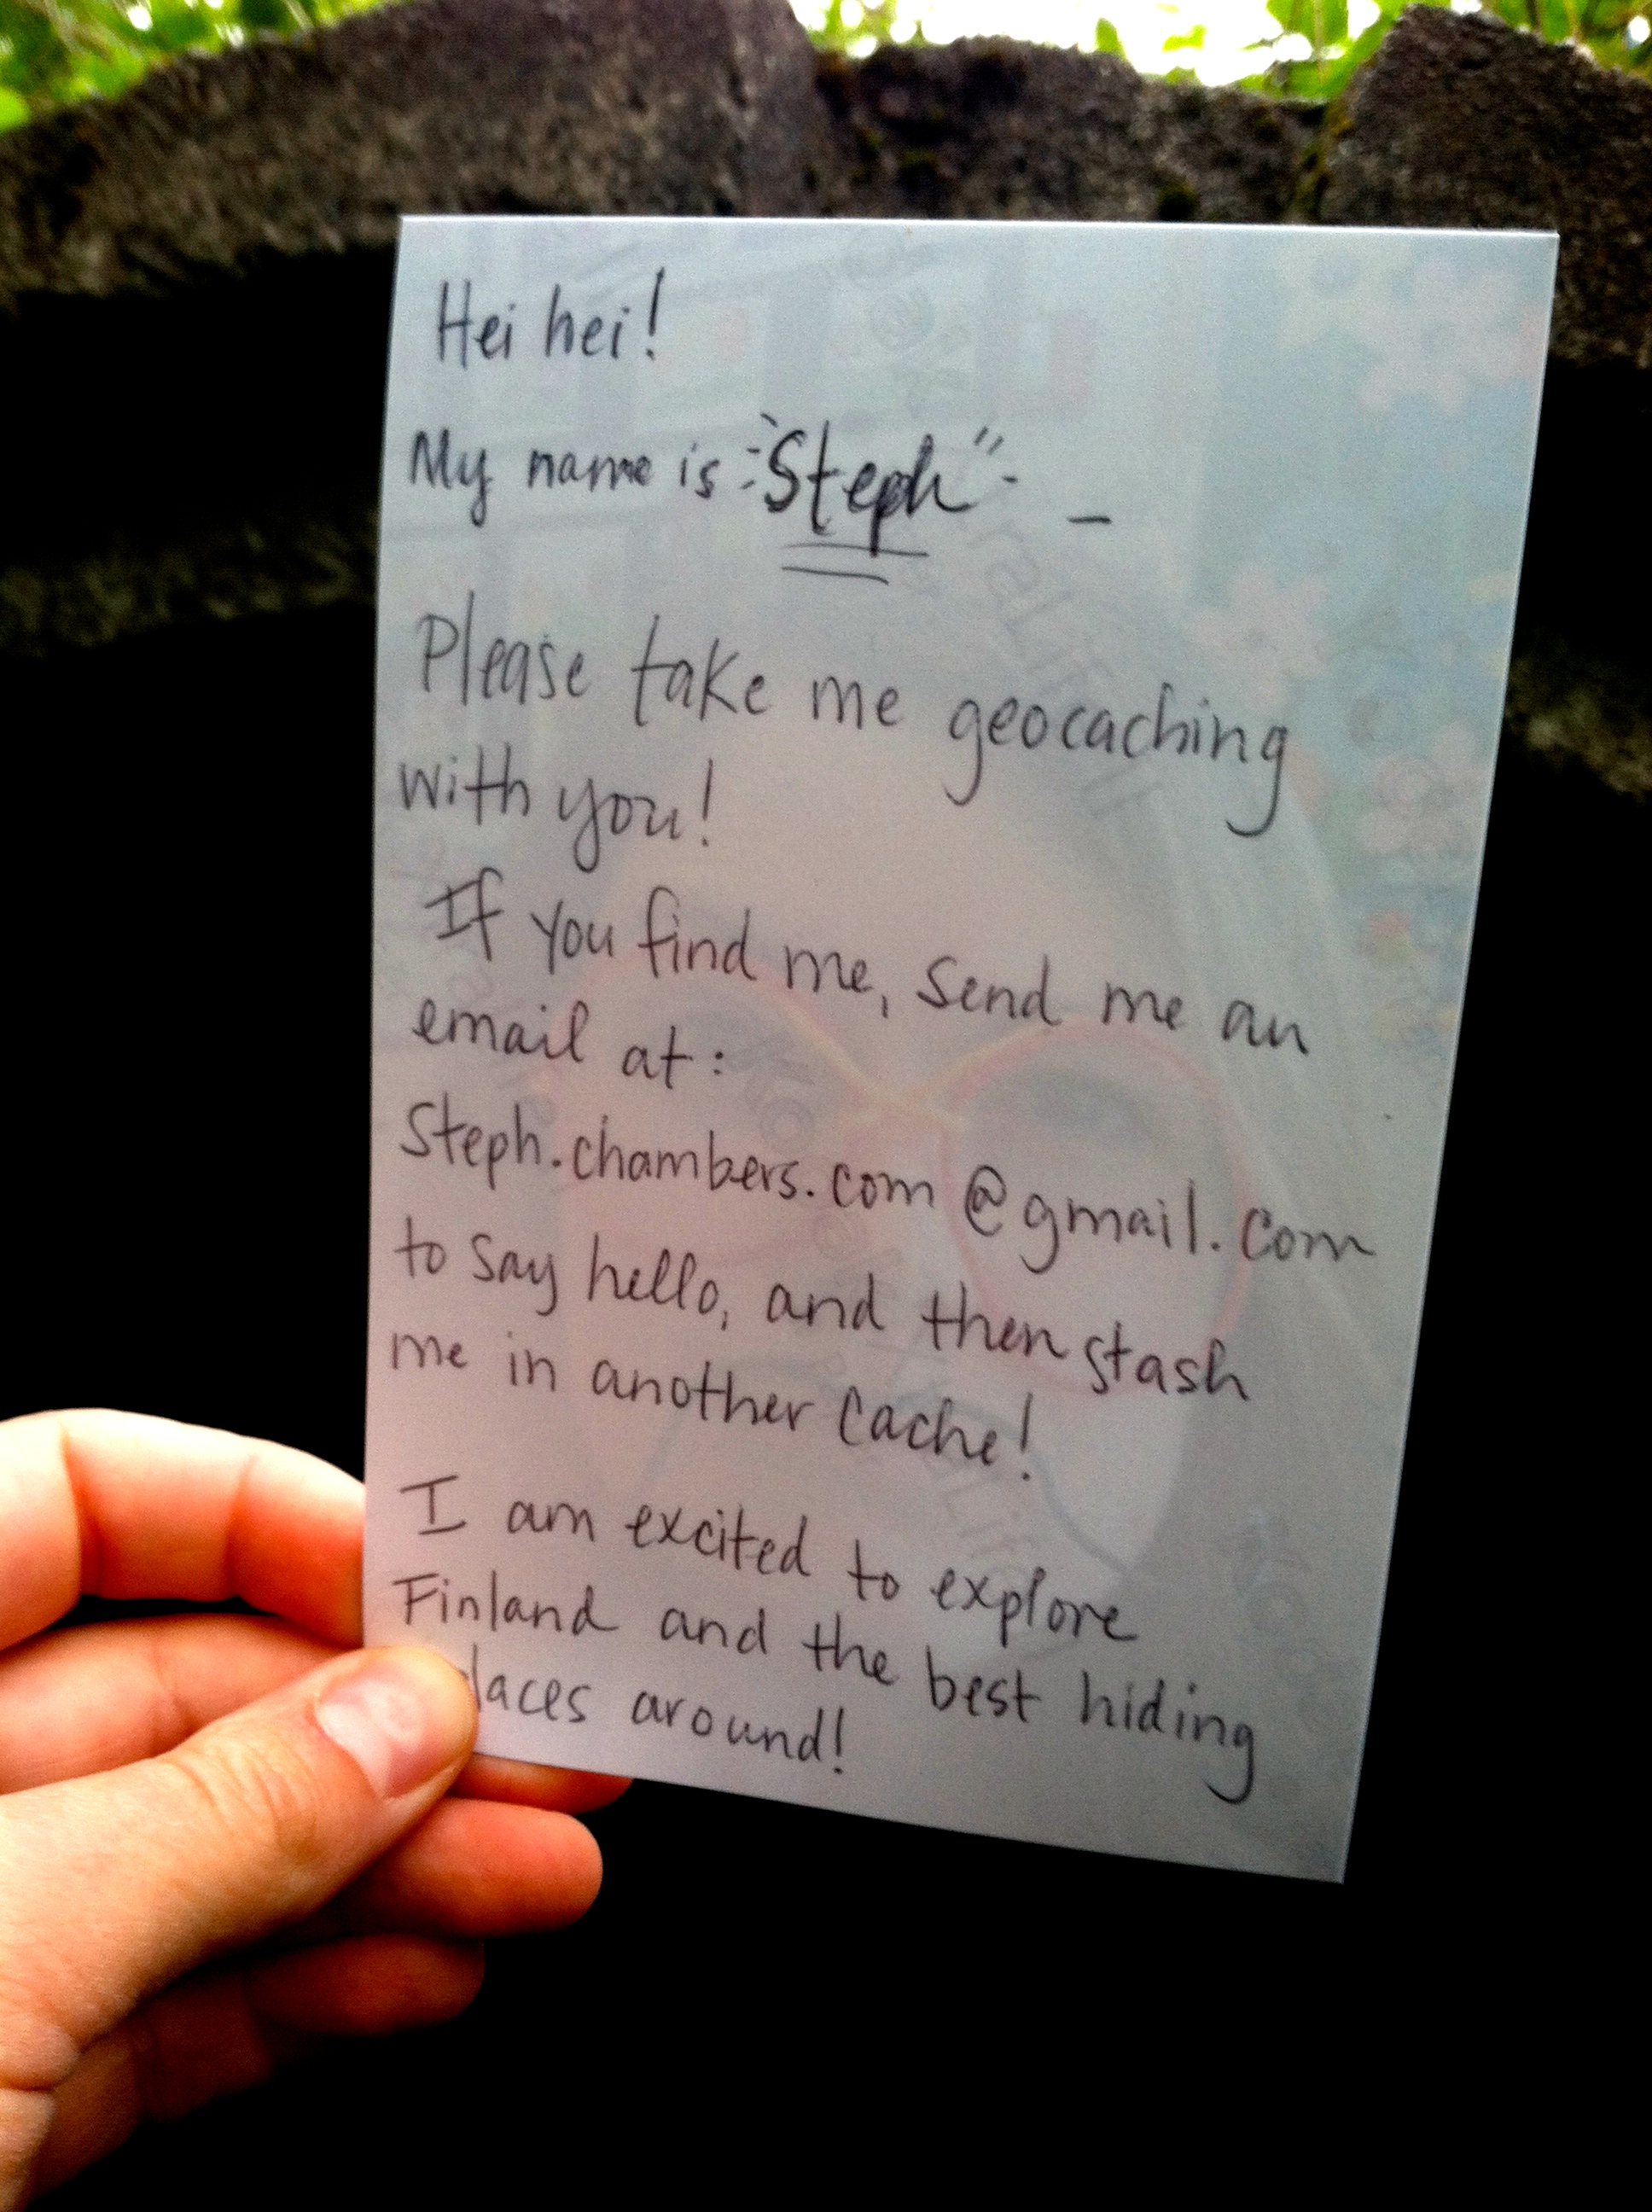 Hei hei!
My name is "Steph" -
Please take me geocaching
with you!
If you find me, send me an
email at:
Steph.chambers.com@gmail.com
to say hello, and then stash
me in another cache!
I am excited to explore
Finland and the best hiding
laces around!